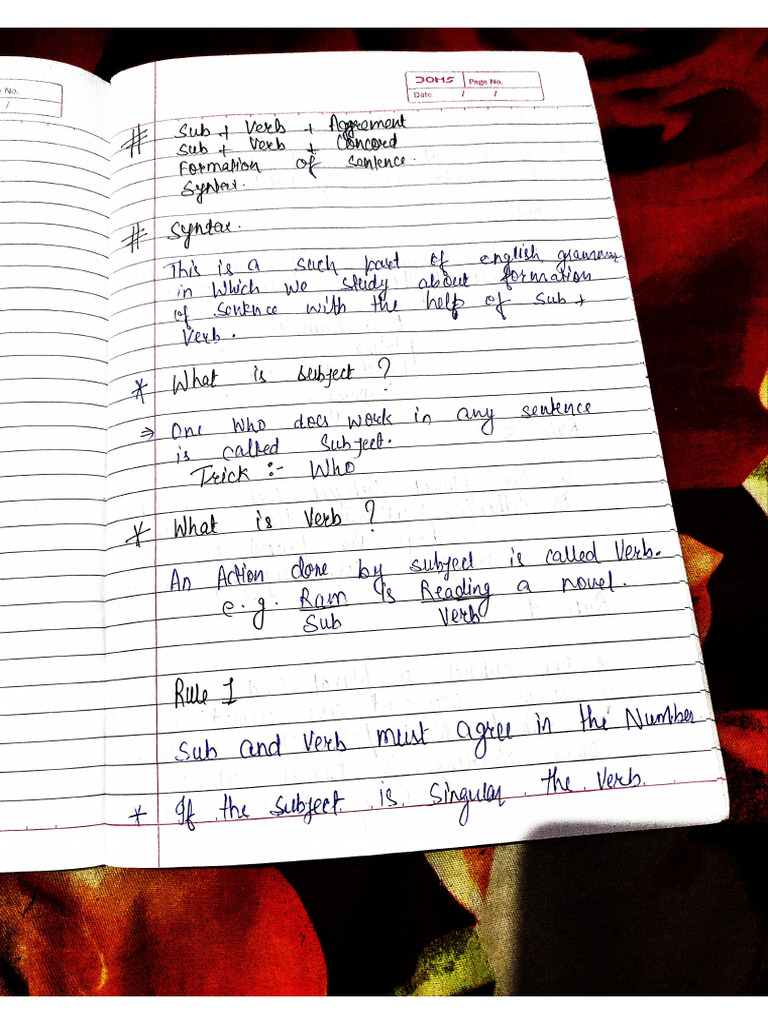 No.
/
DOMS Page No.
Date / /
# Sub + Verb + Aggrement
Sub + Verb + Concord
Formation of sentence.
Syntax.
# Syntax.
This is a such part of english grammar
in which we study about formation
of sentence with the help of Sub +
Verb.
* What is subject ?
⇒ One who does work in any sentence
is called Subject.
Trick :- Who
* What is Verb ?
An Action done by subject is called Verb.
e.g. Ram is Reading a novel.
Sub Verb
Rule 1
Sub and Verb must agree in the Number
* If the subject is Singular the verb